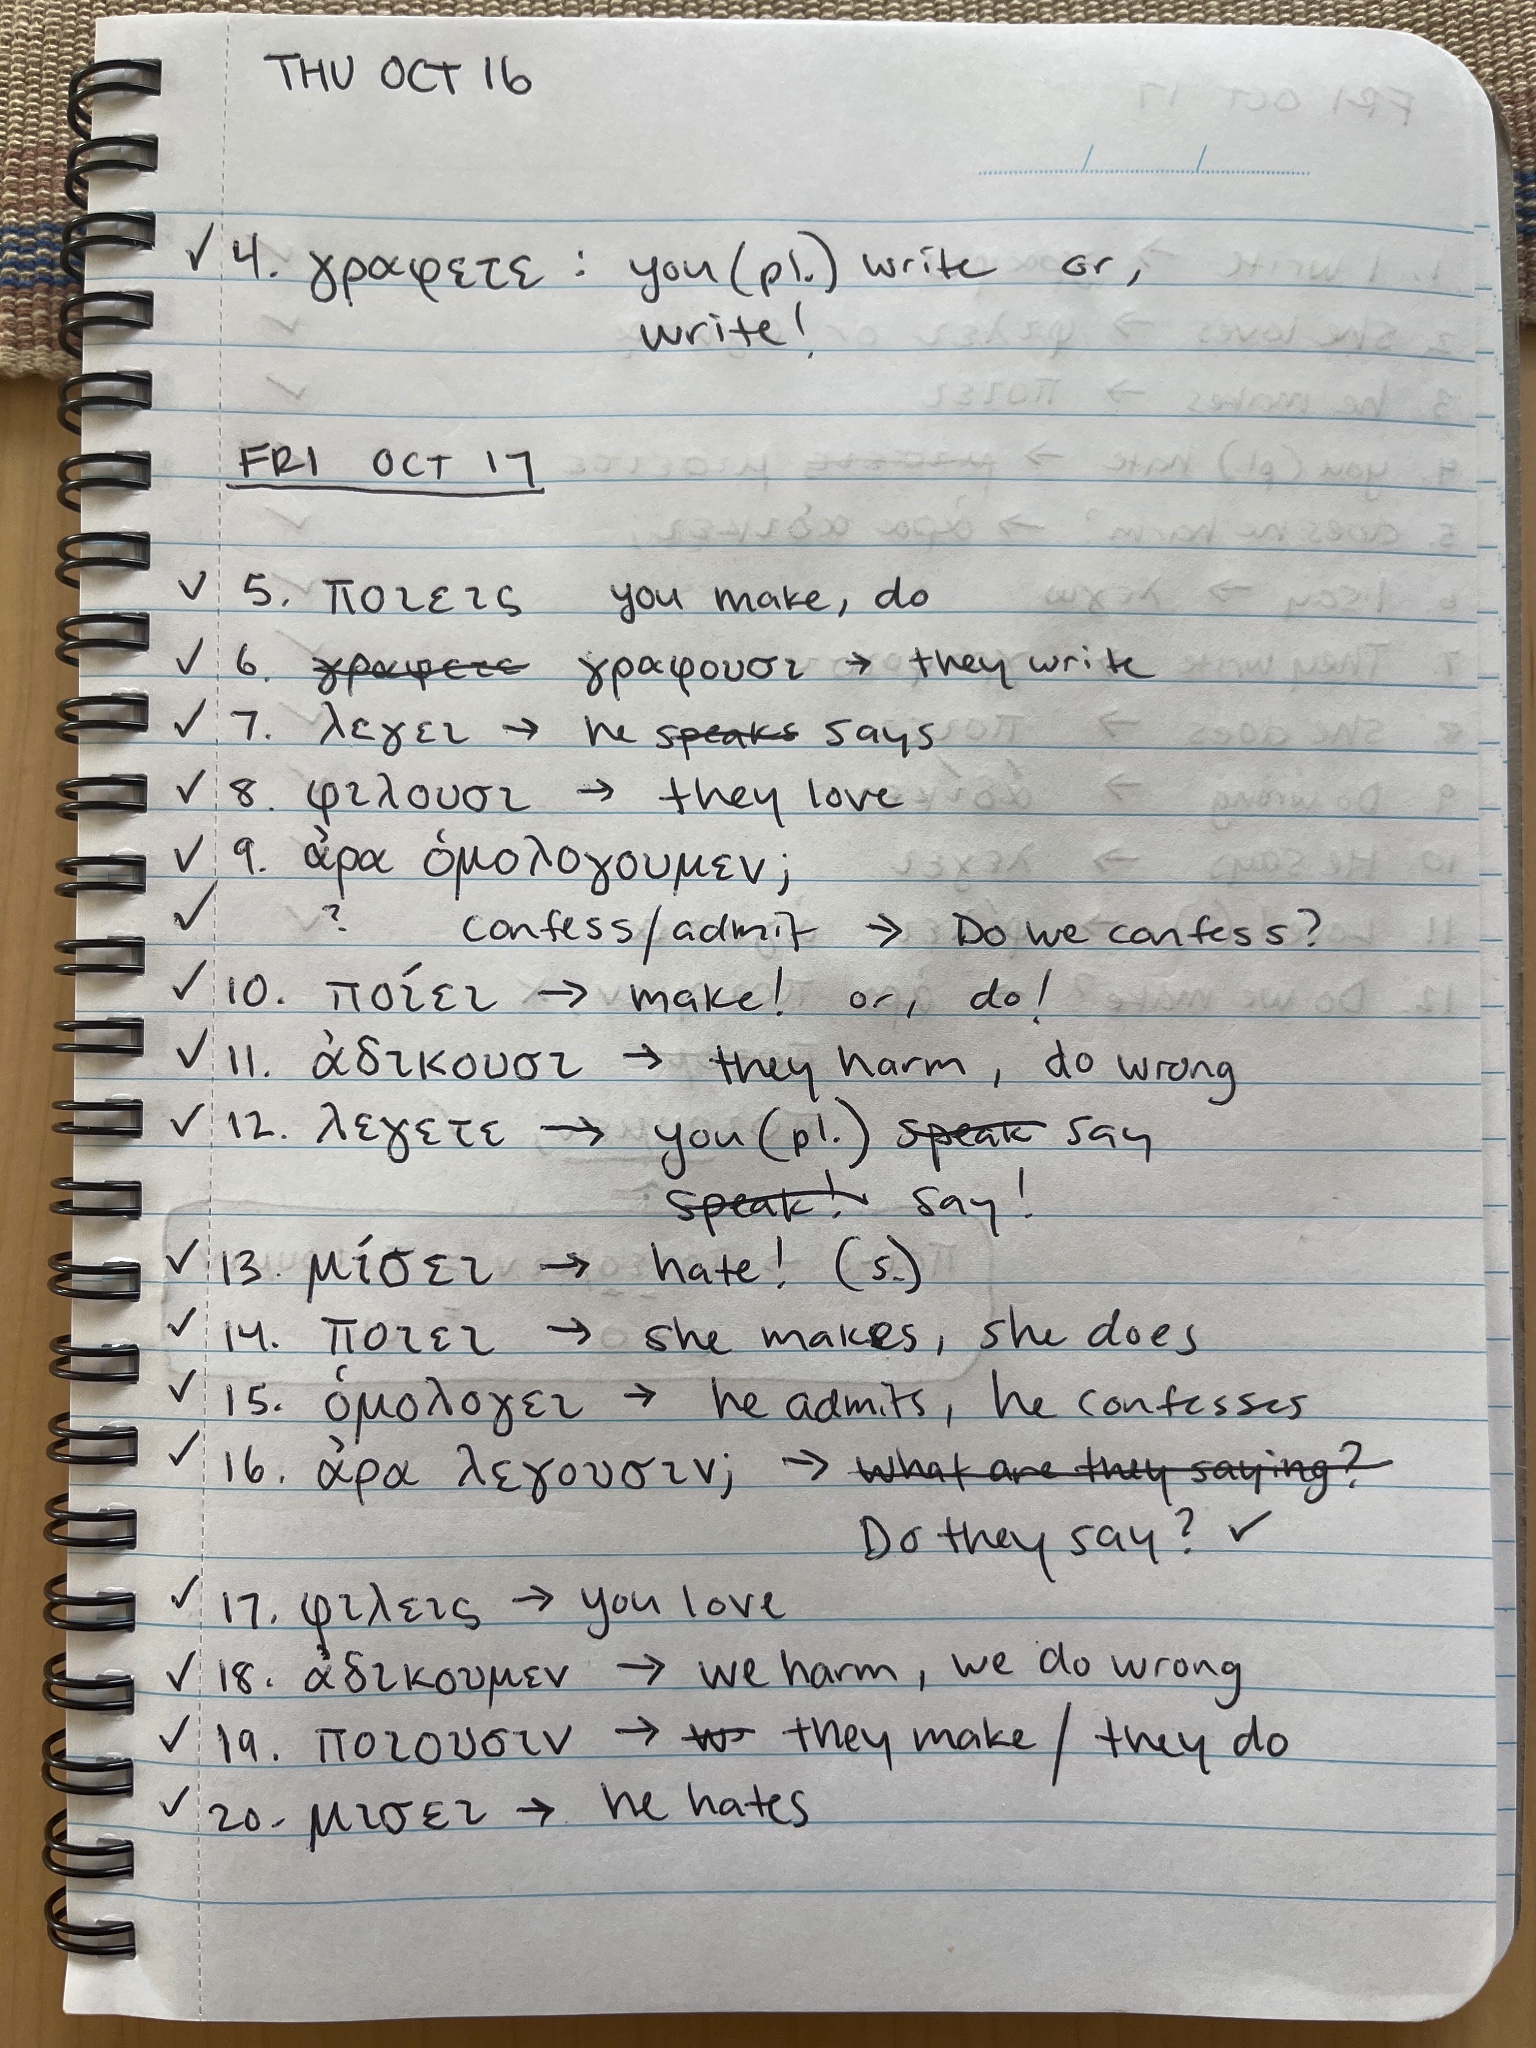 THU OCT 16
✓ 4. γραφετε : you (pl.) write or,
write!
FRI OCT 17
✓ 5. ποιεις you make, do
✓ 6. γραφετε γραφουσι → they write
✓ 7. λεγει → he speaks says
✓ 8. φιλουσι → they love
✓ 9. ἀρα ὁμολογουμεν;
✓ ? confess/admit → Do we confess?
✓ 10. ποίει → make! or, do!
✓ 11. ἀδικουσι → they harm, do wrong
✓ 12. λεγετε → you (pl.) speak say
speak! say!
✓ 13. μίσει → hate! (s.)
✓ 14. ποιει → she makes, she does
✓ 15. ὁμολογει → he admits, he confesses
✓ 16. ἀρα λεγουσιν; → what are they saying?
Do they say? ✓
✓ 17. φιλεις → you love
✓ 18. ἀδικουμεν → we harm, we do wrong
✓ 19. ποιουσιν → they make / they do
✓ 20. μισει → he hates